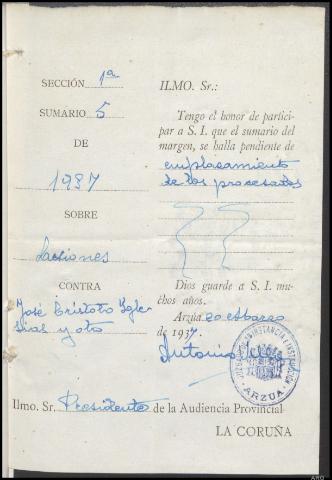 SECCIÓN 1ª
SUMARIO 5
DE
1937
SOBRE
Lesiones
CONTRA
José Cristobo Igle
sias y otro
ILMO. Sr.:
Tengo el honor de partici-
par a S. I. que el sumario del
margen, se halla pendiente de
emplazamiento
de los procesados
Dios guarde a S. I. mu-
chos años.
Arzúa 20 Marzo
de 1937
Antonio
JUZGADO DE 1ª INSTANCIA E INSTRUCCIÓN
ARZUA
Ilmo. Sr. Presidente de la Audiencia Provincial
LA CORUÑA